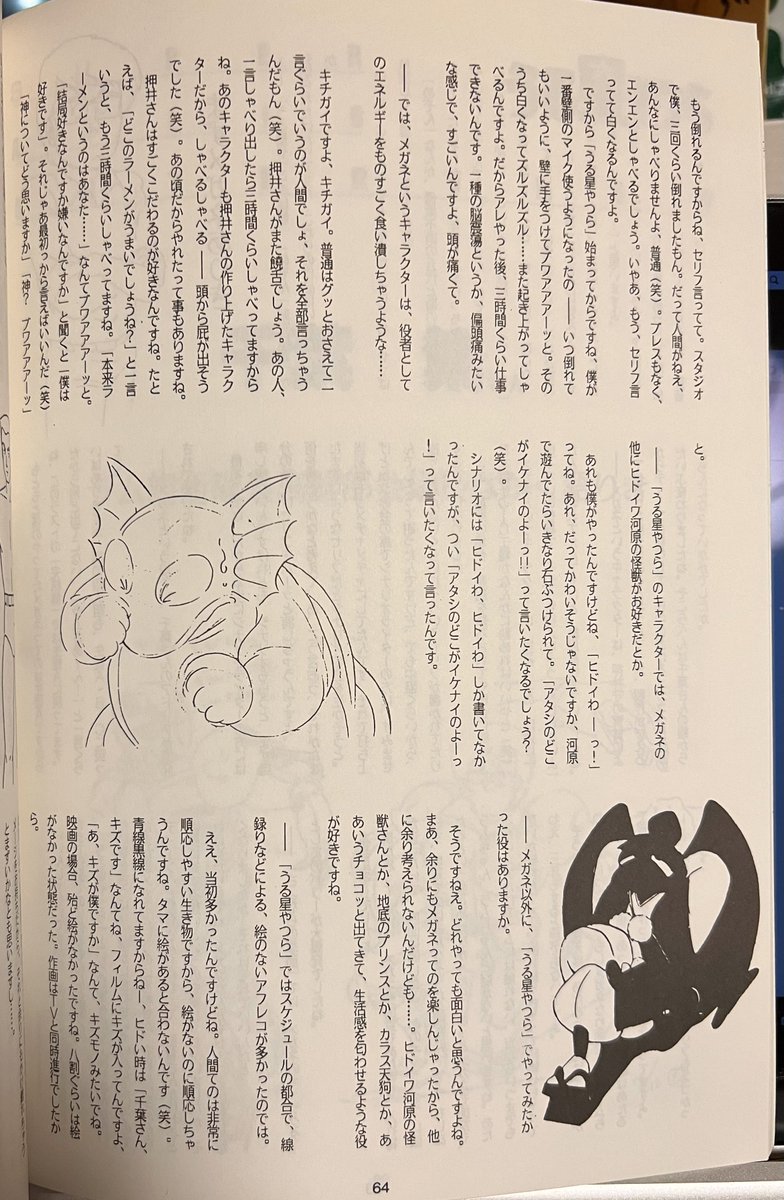 もう倒れるんですからね、セリフ言ってて。スタジオ
で僕、三回くらい倒れましたもん。だって人間がねえ、
あんなにしゃべりませんよ、普通（笑）。ブレスもなく、
エンエンとしゃべるでしょう。いやあ、もう、セリフ言
ってて白くなるんですよ。
ですから「うる星やつら」始まってからですね、僕が
一番壁側のマイク使うようになったの――いつ倒れて
もいいように、壁に手をつけてブワァアアーッと。その
うち白くなってズルズルズル……また起き上がってしゃ
べるんですよ。だからアレやった後、三時間くらい仕事
できないんです。一種の脳震盪というか、偏頭痛みたい
な感じで、すごいんですよ、頭が痛くて。
――では、メガネというキャラクターは、役者として
のエネルギーをものすごく食い潰しちゃうような……
キチガイですよ、キチガイ。普通はグッとおさえて二
言ぐらいでいうのが人間でしょ、それを全部言っちゃう
んだもん（笑）。押井さんがまた饒舌でしょう。あの人、
一言しゃべり出したら三時間くらいしゃべってますから
ね。あのキャラクターも押井さんの作り上げたキャラク
ターだから、しゃべるしゃべる――頭から屁が出そう
でした（笑）。あの頃だからやれたって事もありますね。
押井さんはすごくこだわるのが好きなんですね。たと
えば、「どこのラーメンがうまいでしょうね？」と一言
いうと、もう三時間くらいしゃべってますね。「本来ラ
ーメンというのはあなた……」なんてブワァアアーッと。
「結局好きなんですか嫌いなんですか」と聞くと「僕は
好きです」。それじゃあ最初っから言えばいいんだ（笑）
「神についてどう思いますか」「神？　ブワァアアーッ」
と。
――「うる星やつら」のキャラクターでは、メガネの
他にヒドイワ河原の怪獣がお好きだとか。
あれも僕がやったんですけどね、「ヒドイわ――っ！」
ってね。あれ、だってかわいそうじゃないですか、河原
で遊んでたらいきなり石ぶつけられて。「アタシのどこ
がイケナイのよーっ!!」って言いたくなるでしょう？
（笑）。
シナリオには「ヒドイわ、ヒドイわ」しか書いてなか
ったんですが、つい「アタシのどこがイケナイのよーっ
！」って言いたくなって言ったんです。
――メガネ以外に、「うる星やつら」でやってみたか
った役はありますか。
そうですねえ。どれやっても面白いと思うんですよね。
まあ、余りにもメガネってのを楽しんじゃったから、他
に余り考えられないんだけども……。ヒドイワ河原の怪
獣さんとか、地底のプリンスとか、カラス天狗とか、あ
あいうチョコッと出てきて、生活感を匂わせるような役
が好きですね。
――「うる星やつら」ではスケジュールの都合で、線
録りなどによる、絵のないアフレコが多かったのでは。
ええ、当初多かったんですけどね。人間てのは非常に
順応しやすい生き物ですから、絵がないのに順応しちゃ
うんですね。タマに絵があると合わないんです（笑）。
青線黒線になれてますからねー、ヒドい時は「千葉さん、
キズです」なんてね、フィルムにキズが入ってんですよ、
「あ、キズが僕ですか」なんて、キズモノみたいでね。
映画の場合、殆ど絵がなかったですね。八割ぐらいは絵
がなかった状態だった。作画はTVと同時進行でしたか
ら。
64